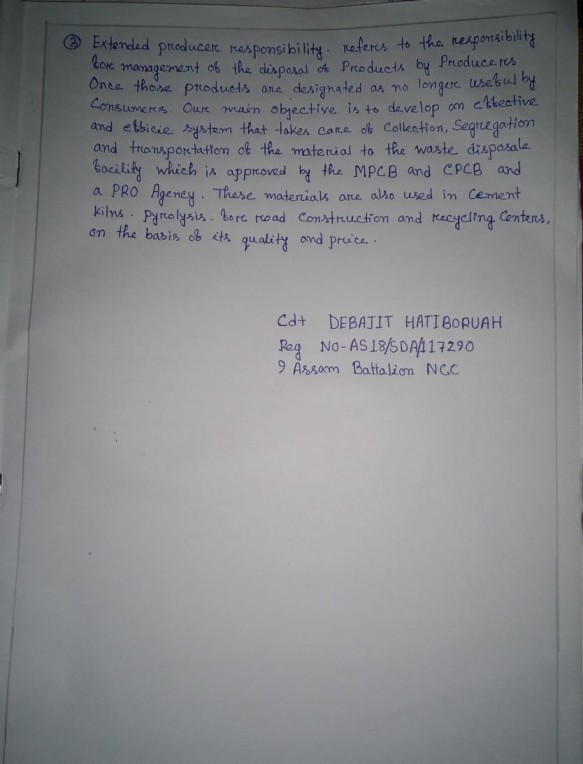 ③ Extended producer responsibility. refers to the responsibility
for management of the disposal of Products by Producers
Once those products are designated as no longer useful by
Consumers. Our main objective is to develop an effective
and efficie system that takes care of Collection, Segregation
and transportation of the material to the waste disposale
facility which is approved by the MPCB and CPCB and
a PRO Agency. These materials are also used in Cement
kilns. Pyrolysis. for road Construction and recycling Centers,
on the basis of its quality and price.
Cdt DEBAJIT HATIBORUAH
Reg NO-AS18/SDA/117290
9 Assam Battalion NCC